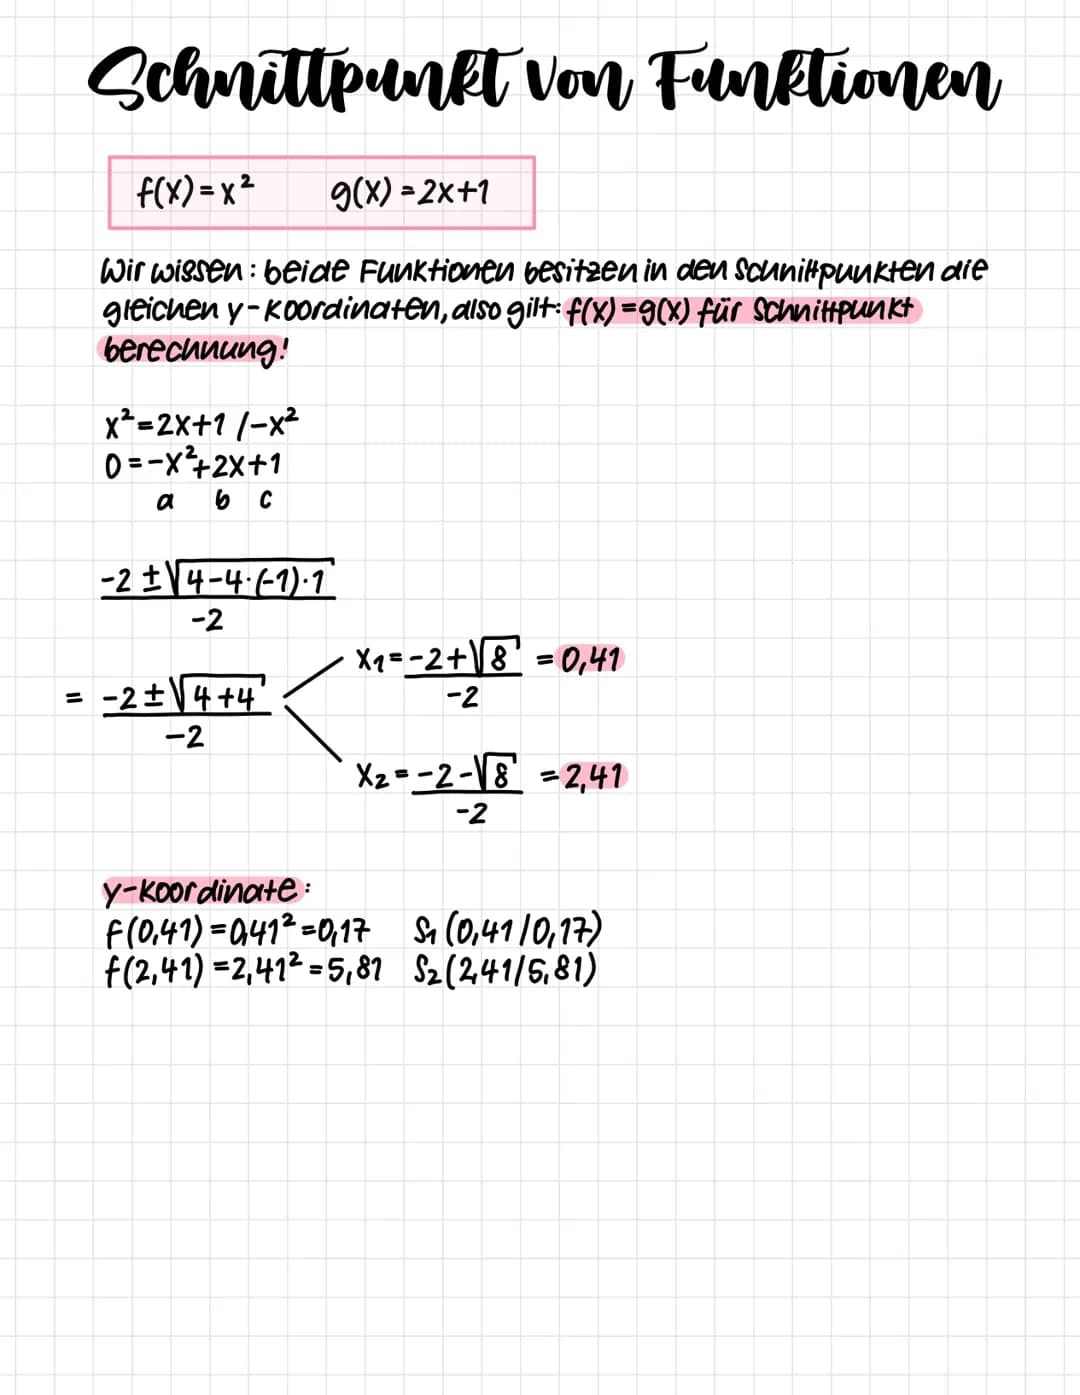 Schnittpunkt von Funktionen
f(x)=x² g(x)=2x+1
Wir wissen: beide Funktionen besitzen in den Schnittpunkten die
gleichen y-Koordinaten, also gilt: f(x)=g(x) für Schnittpunkt
berechnung!
x²=2x+1 /-x²
0=-x²+2x+1
a b c
-2±√4-4·(-1)·1
-2
x₁=-2+√8 =0,41
-2
= -2±√4+4
-2
x₂=-2-√8 =2,41
-2
y-koordinate:
f(0,41)=0,41²=0,17 S₁(0,41/0,17)
f(2,41)=2,41²=5,81 S₂(2,41/5,81)